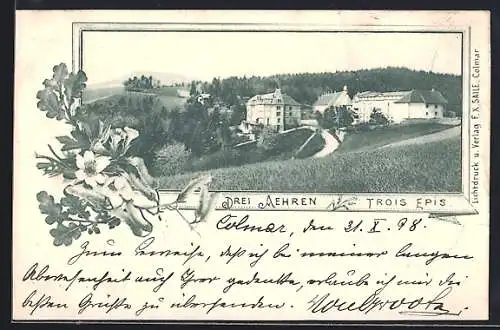 Lichtdruck u. Verlag F. X. SAILE, Colmar
DREI AEHREN TROIS EPIS
Colmar, den 21. X. 98.
Zum Beweise, daß ich bei meiner langen
Abwesenheit auch Ihrer gedenke, erlaube ich mir die
besten Grüße zu übersenden.